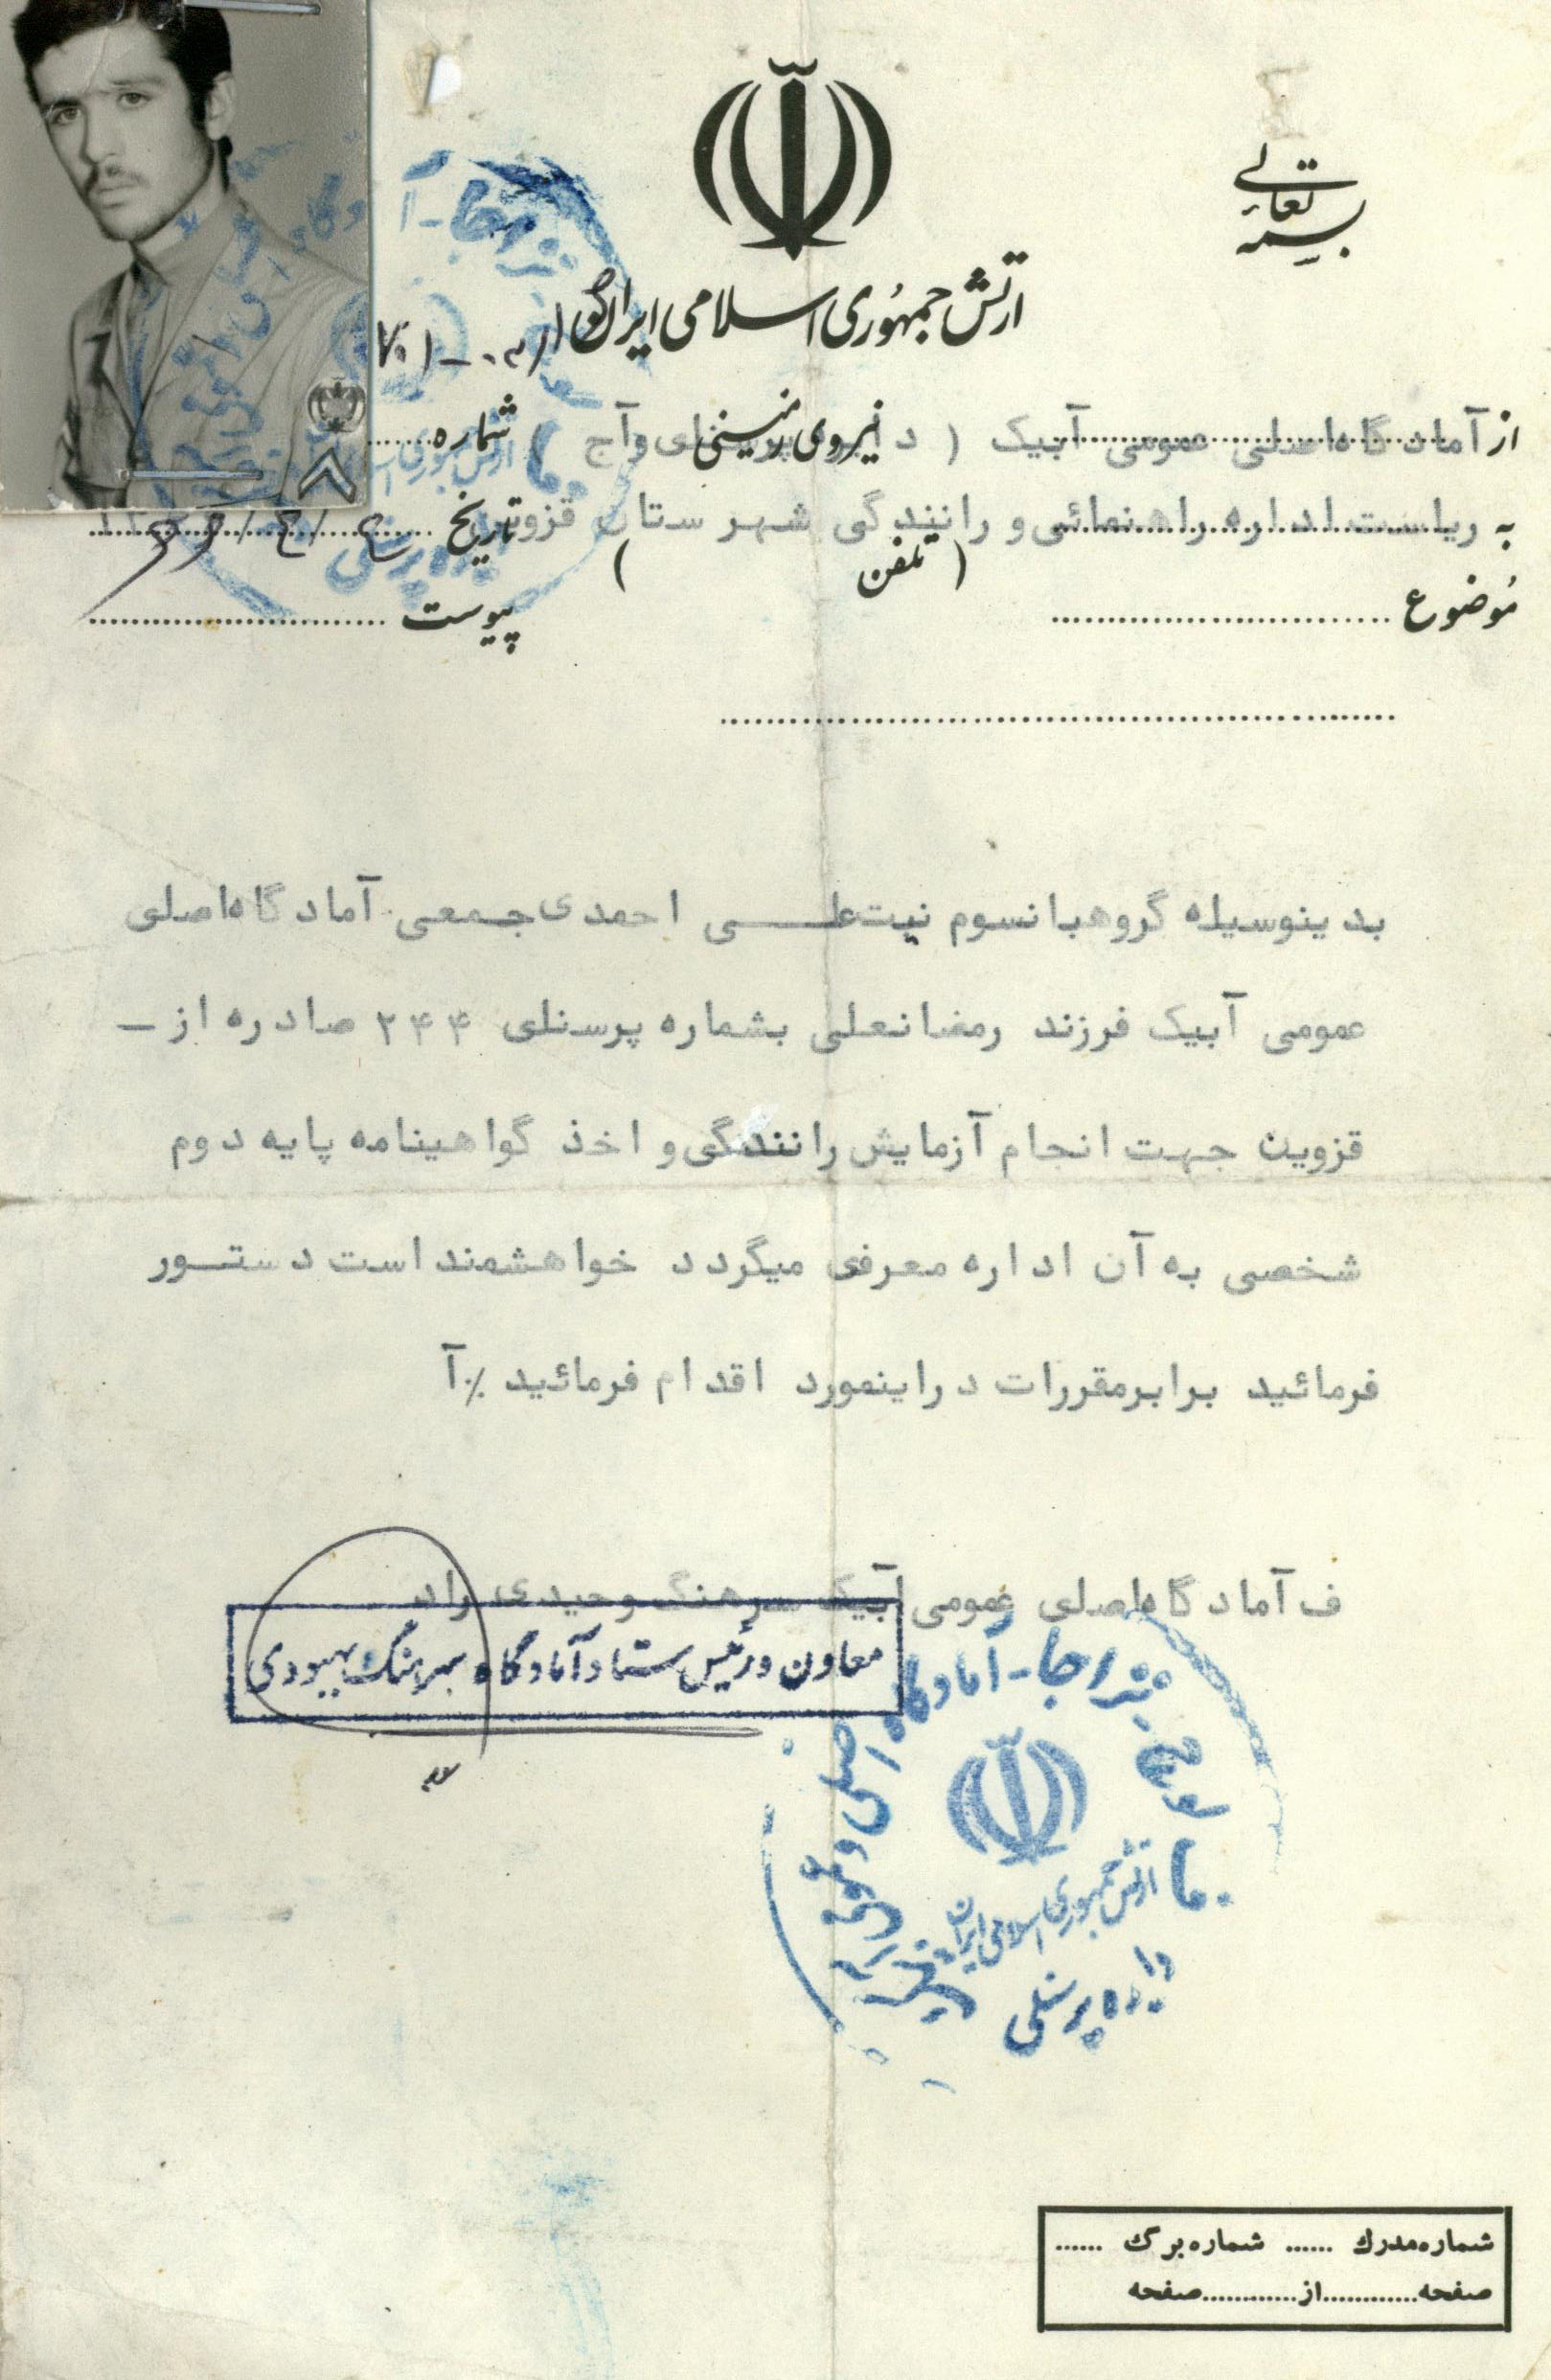 بسمه تعالی
ارتش جمهوری اسلامی ایران
نیروی زمینی
از آمادگاه اصلی عمومی آبیک ( دایره پرسنلی وآج )
شماره
به ریاست اداره راهنمائی و رانندگی شهرستان قزوین
تاریخ
( تلفن )
موضوع
پیوست
بدینوسیله گروهبانسوم نیت علی احمدی جمعی آمادگاه اصلی
عمومی آبیک فرزند رمضانعلی بشماره پرسنلی ۲۴۴ صادره از –
قزوین جهت انجام آزمایش رانندگی و اخذ گواهینامه پایه دوم
شخصی به آن اداره معرفی میگردد خواهشمند است دستور
فرمائید برابر مقررات در اینمورد اقدام فرمائید ٪آ
ف آمادگاه اصلی عمومی آبیک سرهنگ وحیدی راد
معاون و رئیس ستاد آمادگاه سرهنگ بهبودی
نزاجا - آمادگاه اصلی و عمومی
ارتش جمهوری اسلامی ایران
دایره پرسنلی
شماره مدرک ...... شماره برگ ......
صفحه ............ از ............ صفحه